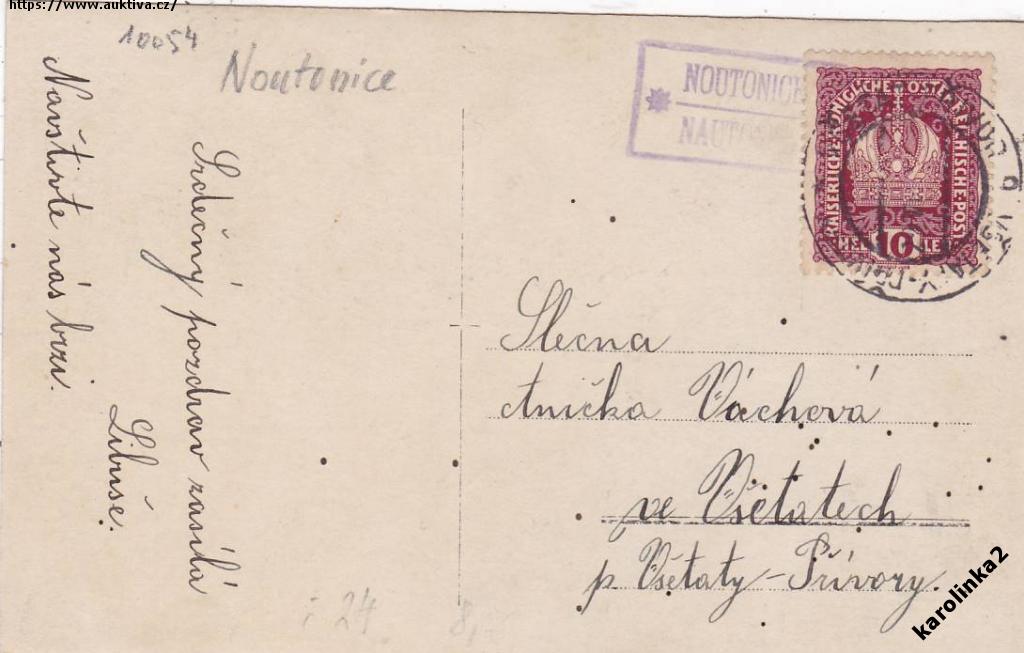 https://www.auktiva.cz/
10054
Noutonice
Srdečný pozdrav zasílá
Libuše.
Navštivte nás brzi.
NOUTONICE
KAISERLICHE KÖNIGLICHE ÖSTERREICHISCHE POST
10
Slečna
Anička Váchová
ve Všetatech
p. Všetaty-Přívory.
24
8,-
karolinka2